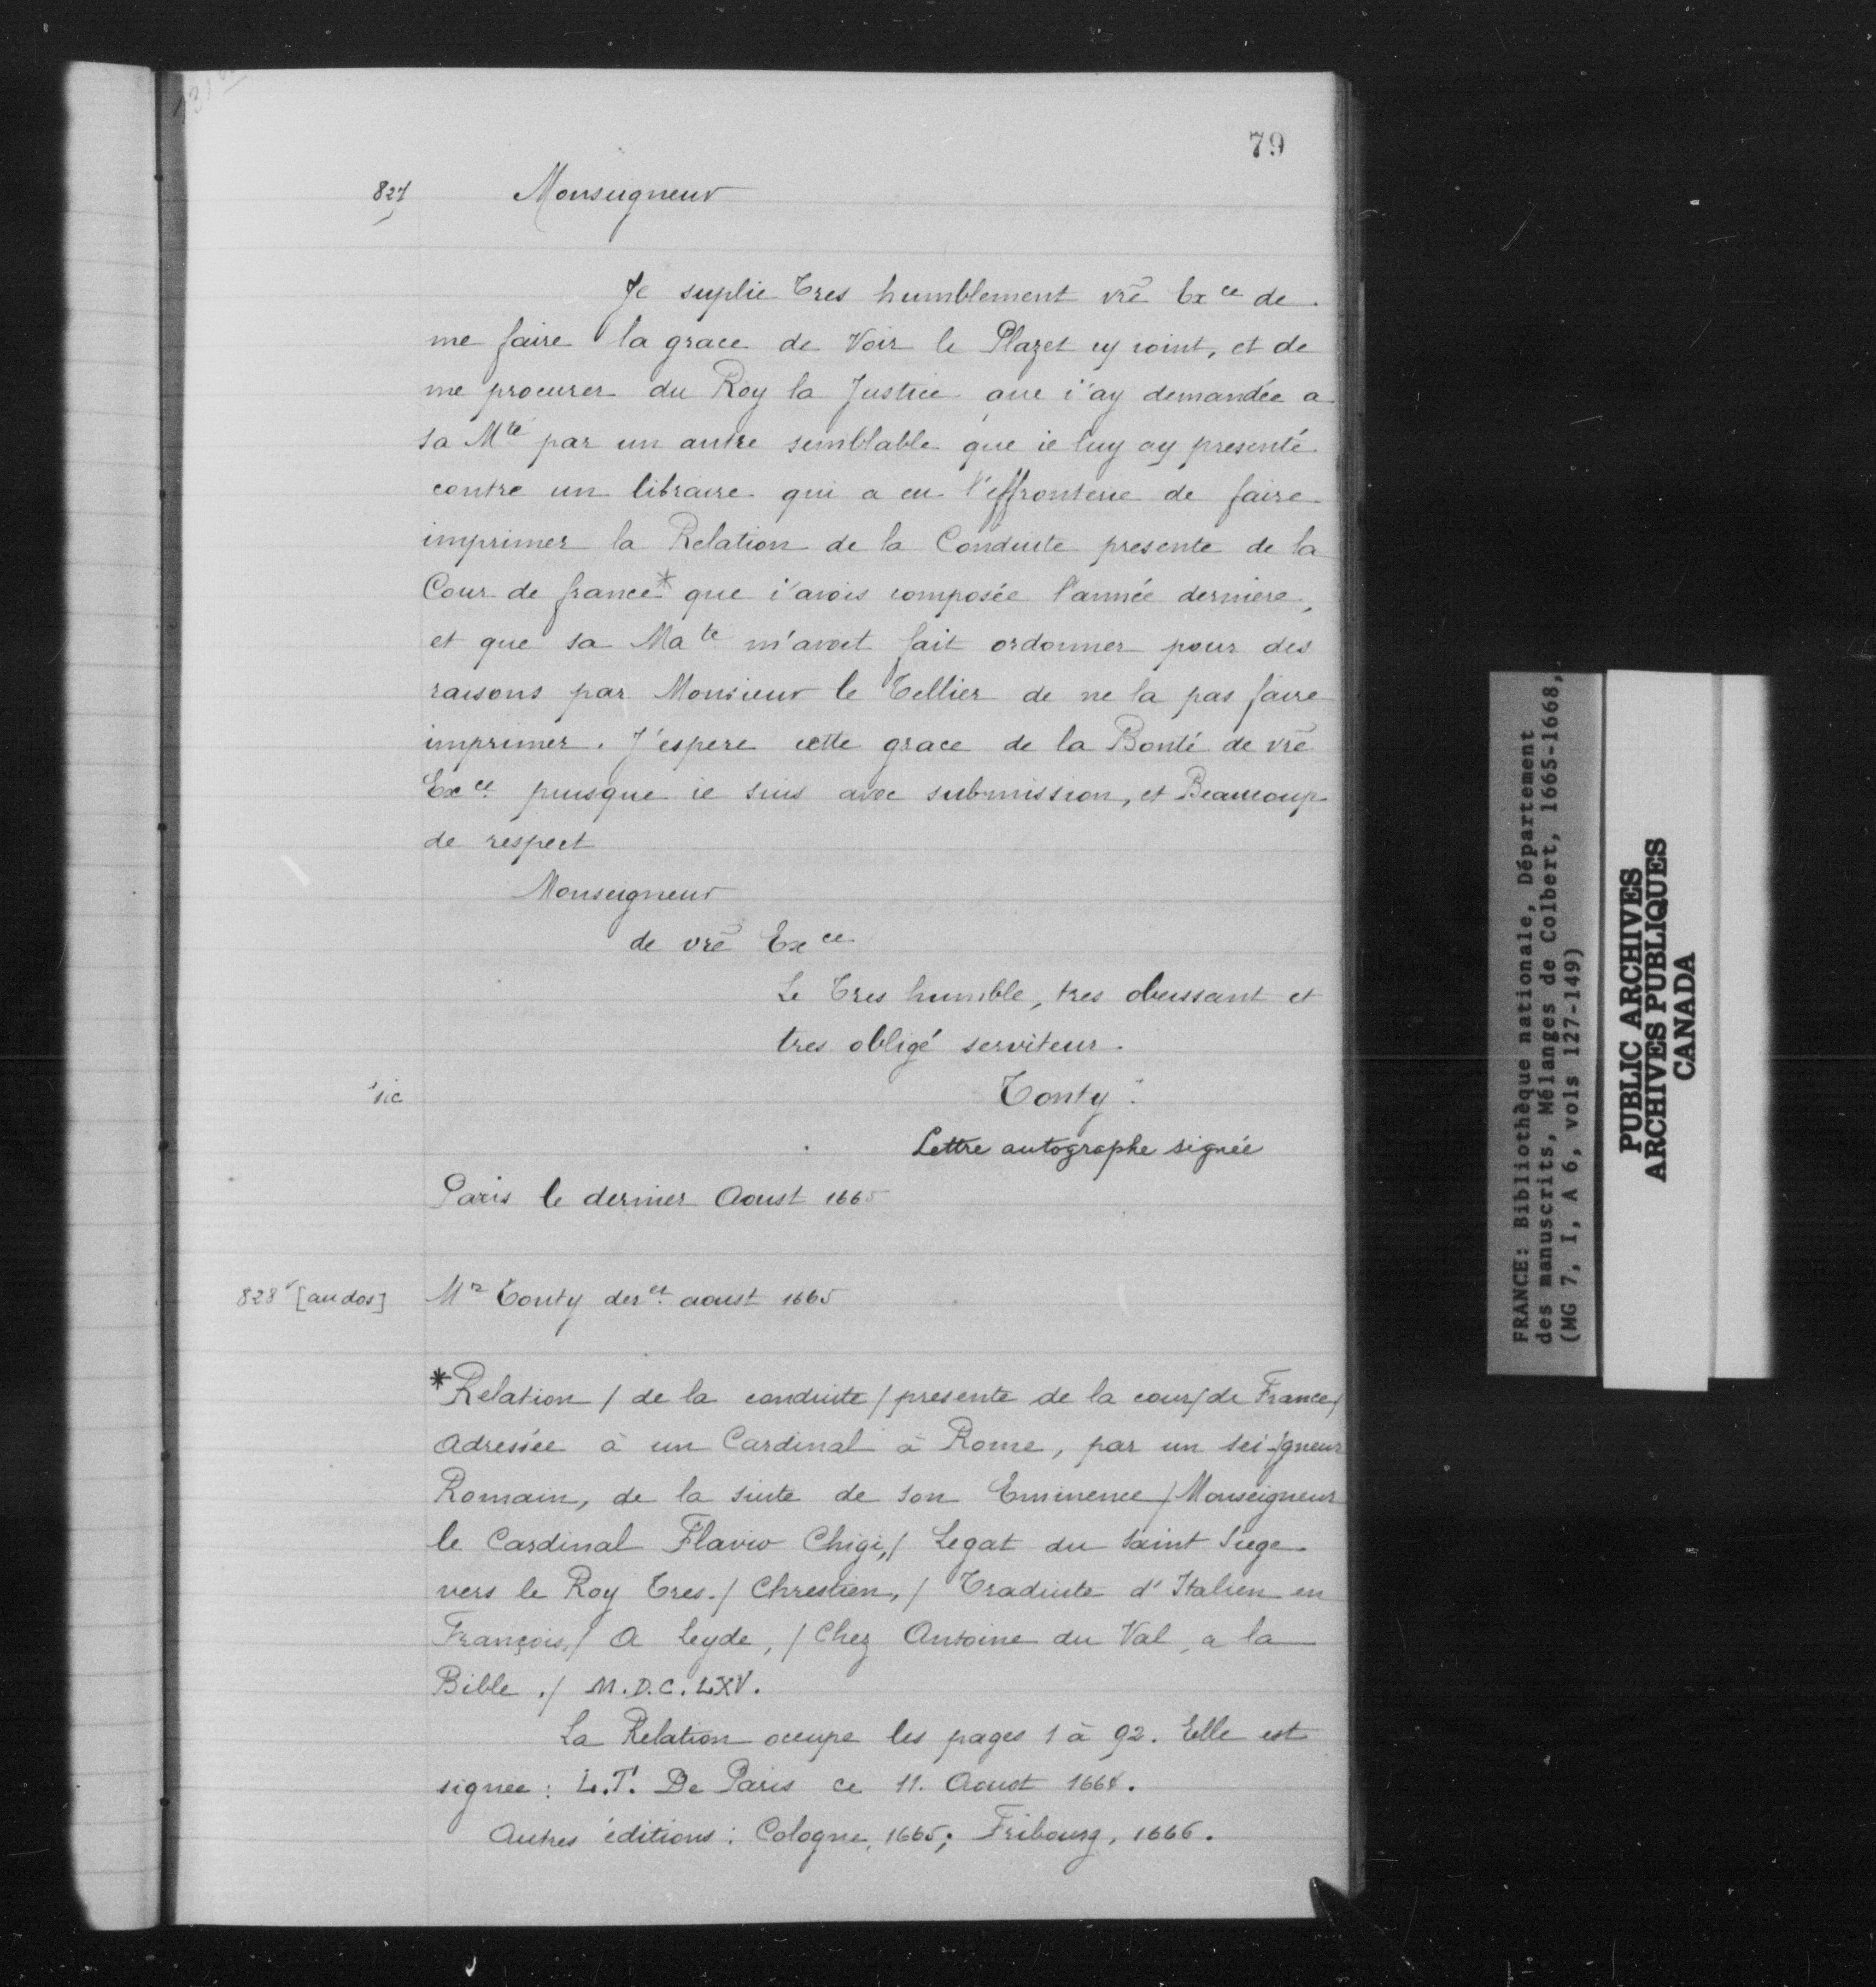 79
827 Monseigneur
Je suplie Tres humblement vrē Ex^ce de
me faire la grace de Voir le Plazet cy ioint, et de
me procurer du Roy la Justice que i'ay demandée a
sa M^té par un autre semblable que ie luy ay presenté
contre un libraire qui a eu l'effronterie de faire
imprimer la Relation de la Conduite presente de la
Cour de france* que i'avois composée l'année derniere,
et que sa Ma^té m'avoit fait ordonner pour des
raisons par Monsieur le Tellier de ne la pas faire
imprimer. J'espere cette grace de la Bonté de vrē
Ex^ce puisque ie suis avec submission, et Beaucoup
de respect
Monseigneur
de vrē Ex^ce
Le Tres humble, tres obeissant et
tres obligé serviteur.
sic Tonty.
Lettre autographe signée
Paris le dernier Aoust 1665
828^v [au dos] M^r Tonty der^er aoust 1665
*Relation / de la conduite / presente de la cour / de France /
Adressée à un Cardinal à Rome, par un sei-/gneur
Romain, de la suite de son Eminence / Monseigneur
le Cardinal Flavio Chigi, / Legat du saint Siege
vers le Roy Tres-/Chrestien, / Traduite d'Italien en
François, / A Leyde, / Chez Antoine du Val, a la
Bible. / M.D.C.LXV.
La Relation occupe les pages 1 à 92. Elle est
signée : L.T. De Paris ce 11. Aoust 1664.
Autres éditions : Cologne, 1665; Fribourg, 1666.
FRANCE: Bibliothèque nationale, Département
des manuscrits, Mélanges de Colbert, 1665-1668,
(MG 7, I, A 6, vols 127-149)
PUBLIC ARCHIVES
ARCHIVES PUBLIQUES
CANADA